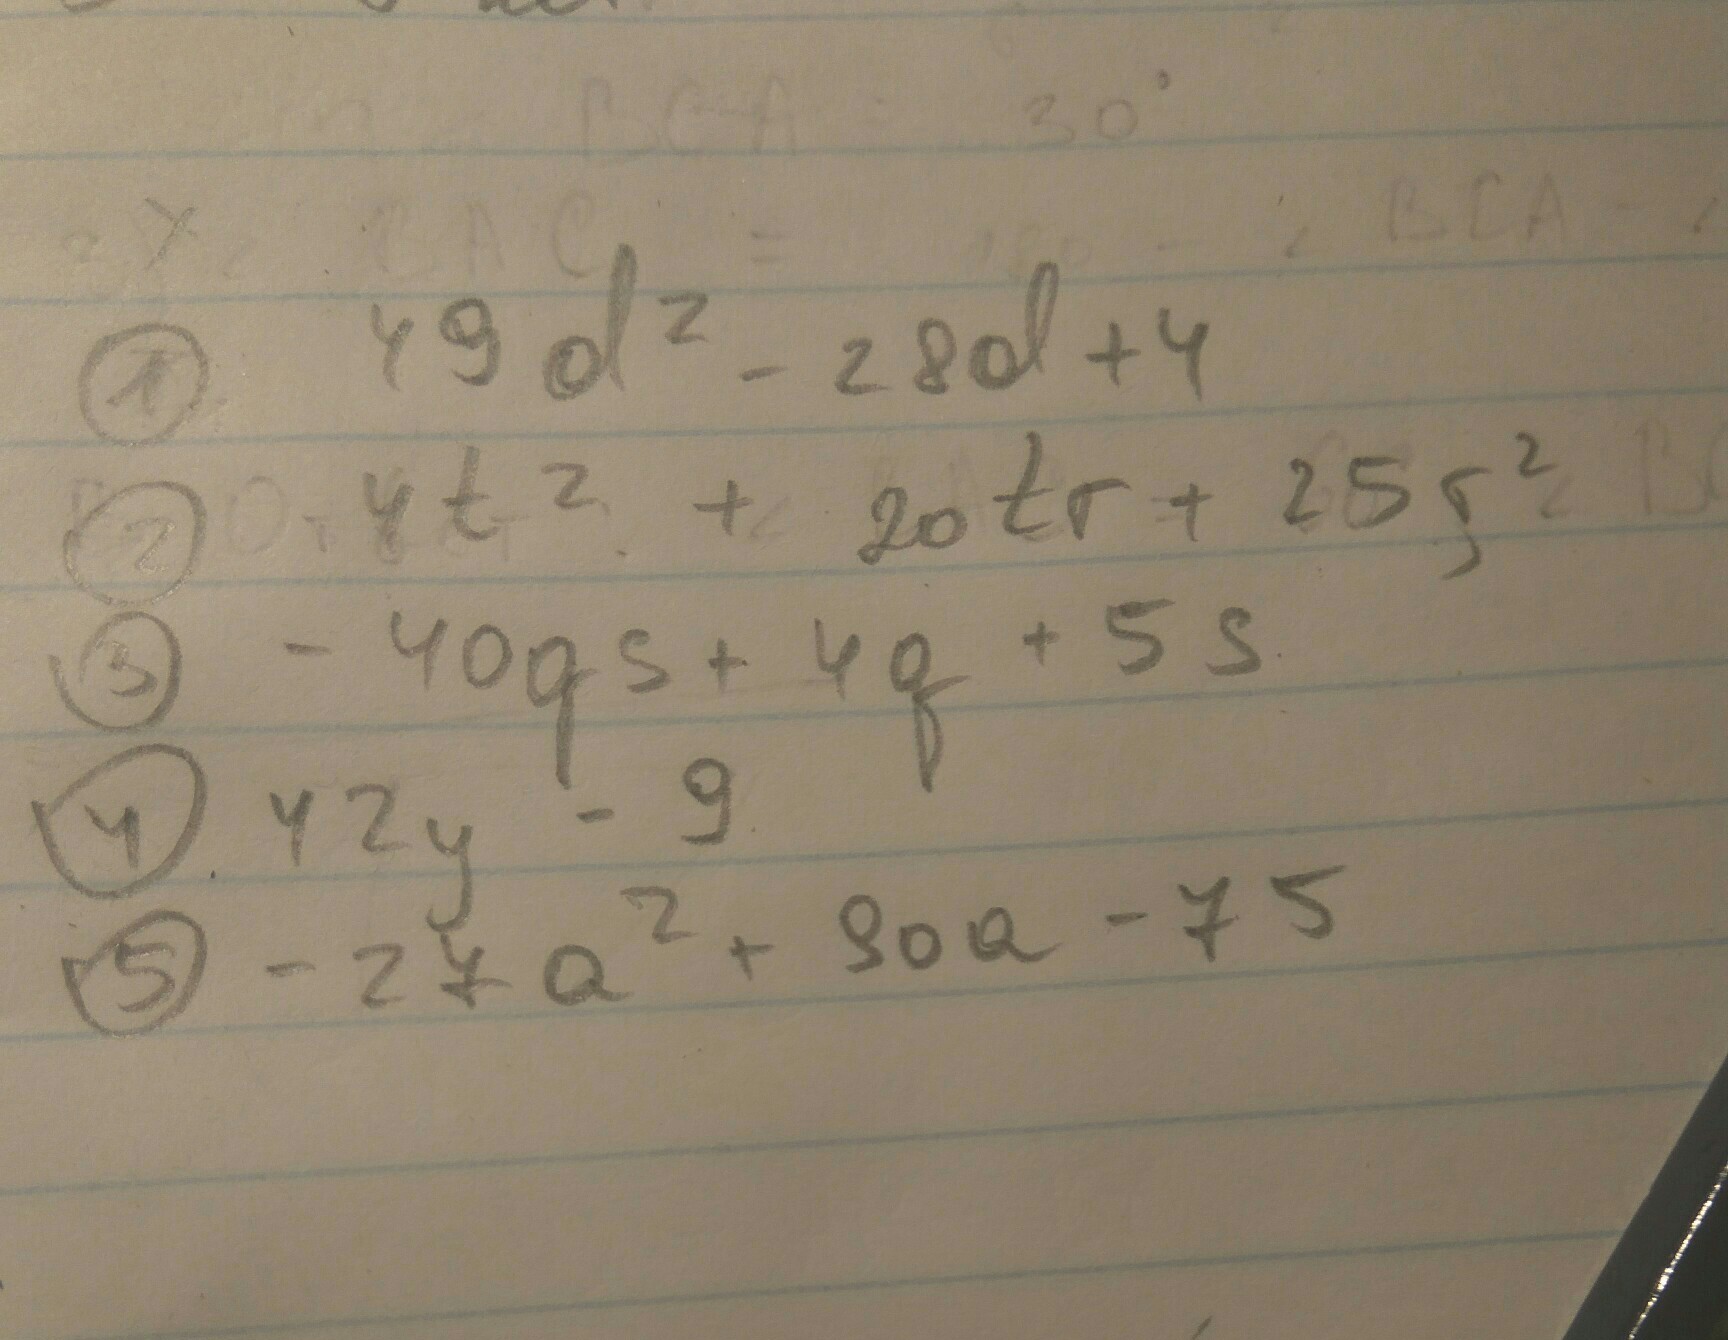 BCA = 30°
BAC = 180 - BCA -
① 49d² - 28d + 4
② 4t² + 20tr + 25r²
③ - 40qs + 4q + 5s
④ 42y - 9
⑤ - 27a² + 90a - 75